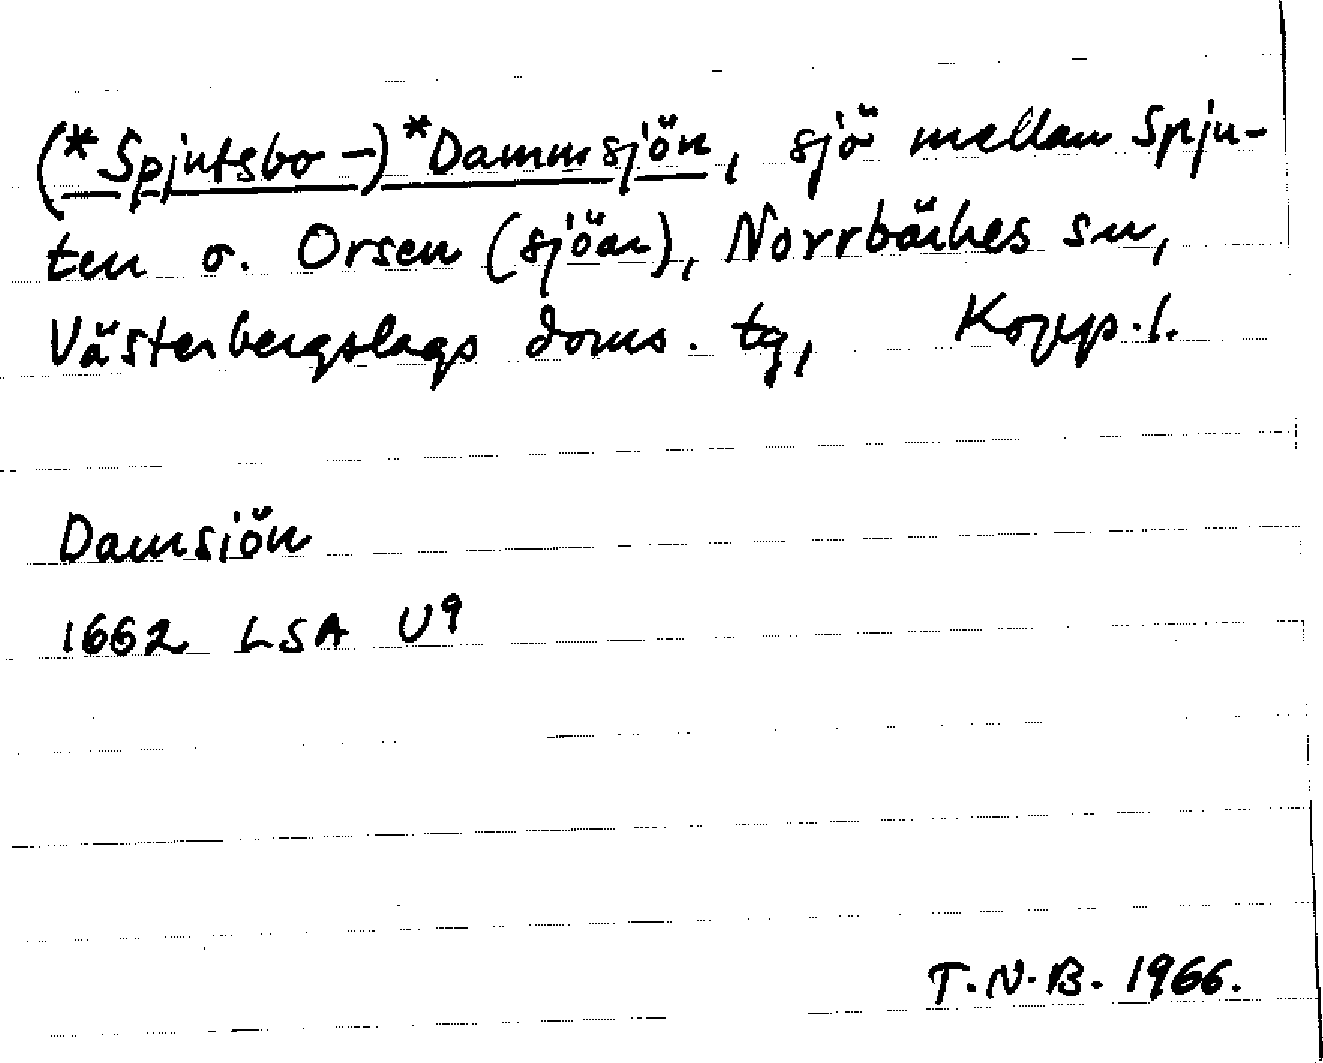 (*Spjutsbo-)*Dammsjön, sjö mellan Spju-
ten o. Orsen (sjöar), Norrbärkes sn,
Västerbergslags doms. tg, Kopp.l.
Damsiön
1662 LSA U9
T.N.B. 1966.